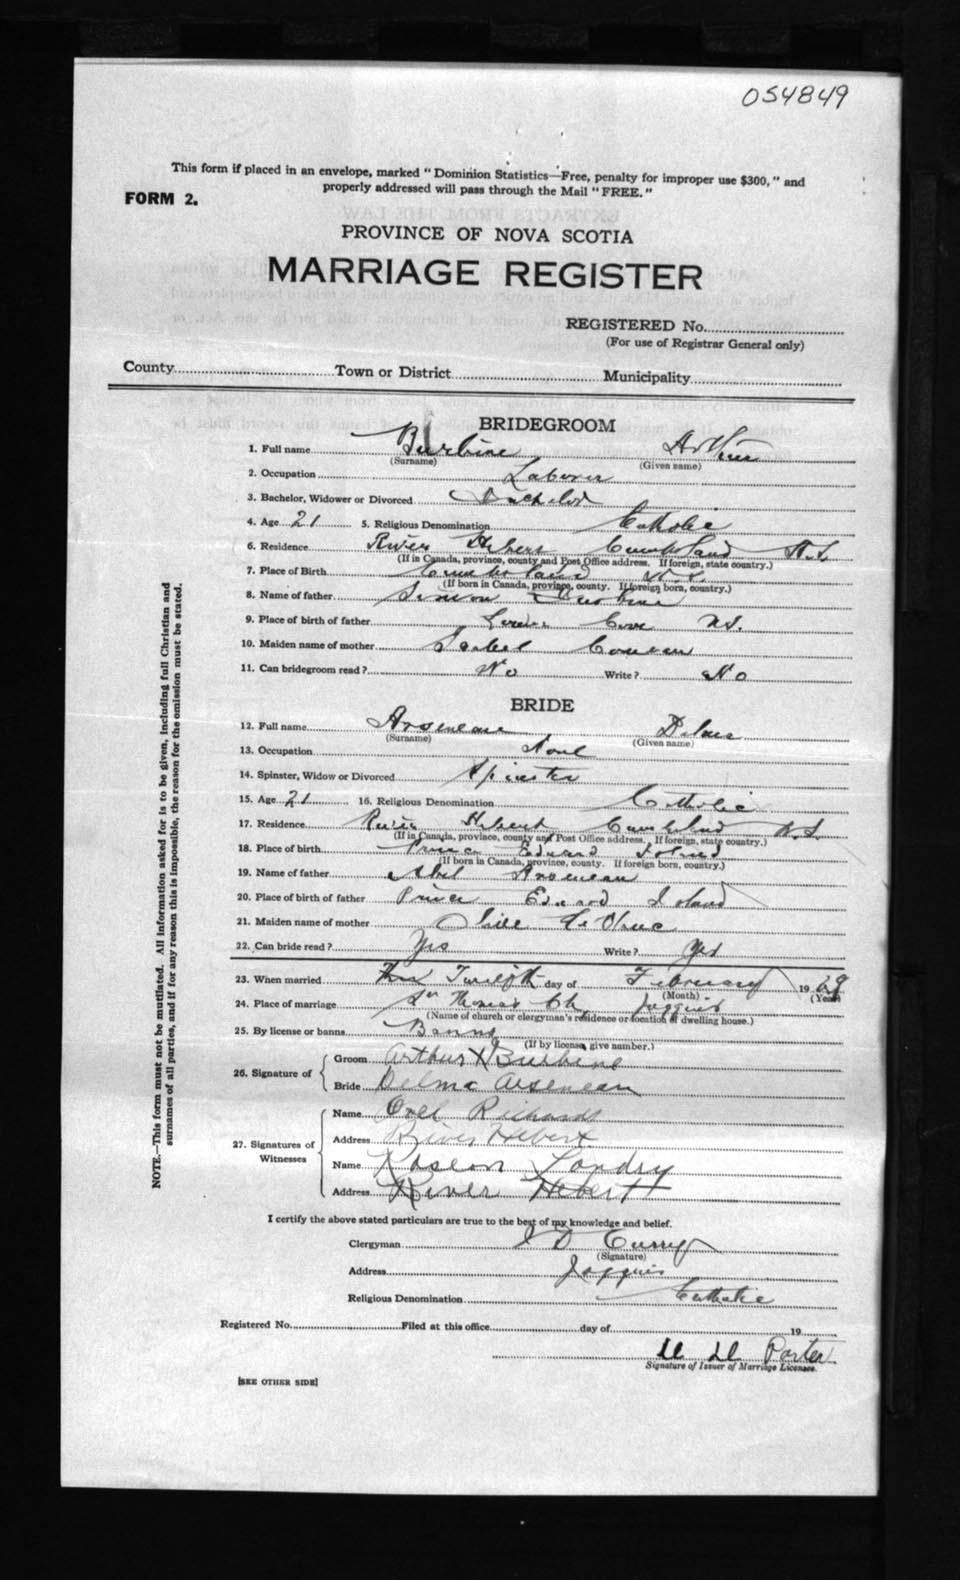 054849
This form if placed in an envelope, marked "Dominion Statistics—Free, penalty for improper use $300," and
properly addressed will pass through the Mail "FREE."
FORM 2.
PROVINCE OF NOVA SCOTIA
MARRIAGE REGISTER
REGISTERED No.
(For use of Registrar General only)
County Town or District Municipality
BRIDEGROOM
1. Full name Burbine Arthur
(Surname) (Given name)
2. Occupation Laborer
3. Bachelor, Widower or Divorced Bachelor
4. Age 21 5. Religious Denomination Catholic
6. Residence River Hebert Cumberland N.S.
(If in Canada, province, county and Post Office address. If foreign, state country.)
7. Place of Birth Cumberland N.S.
(If born in Canada, province, county. If foreign born, country.)
8. Name of father Simon Burbine
9. Place of birth of father Cove N.S.
10. Maiden name of mother Isabel Comeau
11. Can bridegroom read? No Write? No
BRIDE
12. Full name Arseneau Delma
(Surname) (Given name)
13. Occupation None
14. Spinster, Widow or Divorced Spinster
15. Age 21 16. Religious Denomination Catholic
17. Residence River Hebert Cumberland N.S.
(If in Canada, province, county and Post Office address. If foreign, state country.)
18. Place of birth Prince Edward Island
(If born in Canada, province, county. If foreign born, country.)
19. Name of father Abel Arseneau
20. Place of birth of father Prince Edward Island
21. Maiden name of mother
22. Can bride read? Yes Write? Yes
23. When married The Twelfth day of February 19
(Month) (Year)
24. Place of marriage St Thomas Ch. Joggins
(Name of church or clergyman's residence or location of dwelling house.)
25. By license or banns Banns
(If by license, give number.)
26. Signature of
Groom Arthur X Burbine
Bride Delma Arseneau
27. Signatures of Witnesses
Name Richards
Address River Hebert
Name Landry
Address River Hebert
I certify the above stated particulars are true to the best of my knowledge and belief.
Clergyman J D Curry
(Signature)
Address Joggins
Religious Denomination Catholic
Registered No. Filed at this office day of 19
Porter
Signature of Issuer of Marriage Licenses.
[SEE OTHER SIDE]
NOTE.—This form must not be mutilated. All information asked for is to be given, including full Christian and
surnames of all parties, and if for any reason this is impossible, the reason for the omission must be stated.